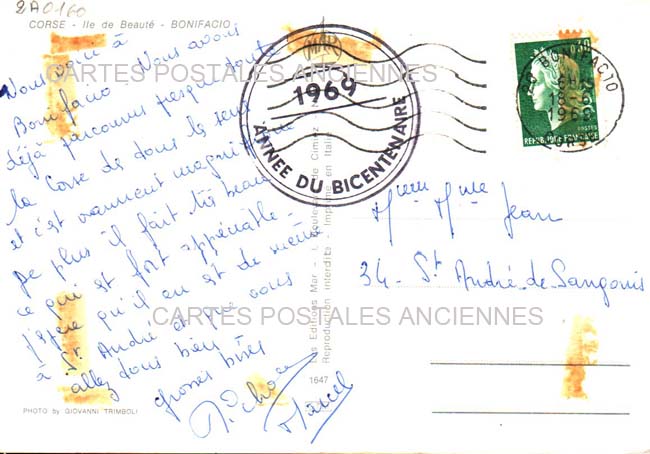 2A0160
CORSE - Ile de Beauté - BONIFACIO
Nous voici à
Bonifacio. Nous avons
déjà parcouru presque toute
la Corse de tous les sens
et c'est vraiment magnifique
De plus il fait très beau
ce qui est fort appréciable -
j'espère qu'il en est de même
à St. André et que vous
allez tous bien
grosses bises
Marcel
PHOTO by GIOVANNI TRIMBOLI
Les Editions Mar - Boulevard de Cimiez
Reproduction interdite - Imprimé en Italie
1647
MAR
1969
ANNÉE DU BICENTENAIRE
BONIFACIO
1969
CORSE
0,30
POSTES
REPUBLIQUE FRANCAISE
Mr Mme Jean
34 - St André-de-Sangonis
CARTES POSTALES ANCIENNES
CARTES POSTALES ANCIENNES